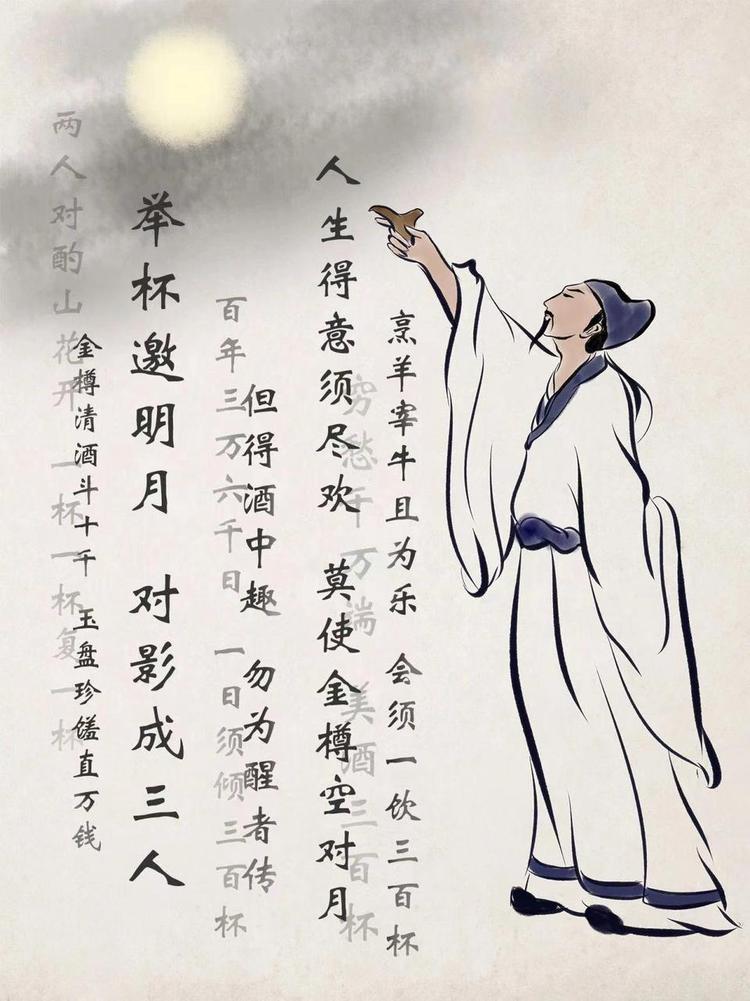 烹羊宰牛且为乐 会须一饮三百杯
穷愁千万端 美酒三百杯
人生得意须尽欢 莫使金樽空对月
但得酒中趣 勿为醒者传
百年三万六千日 一日须倾三百杯
举杯邀明月 对影成三人
金樽清酒斗十千 玉盘珍馐直万钱
两人对酌山花开 一杯一杯复一杯